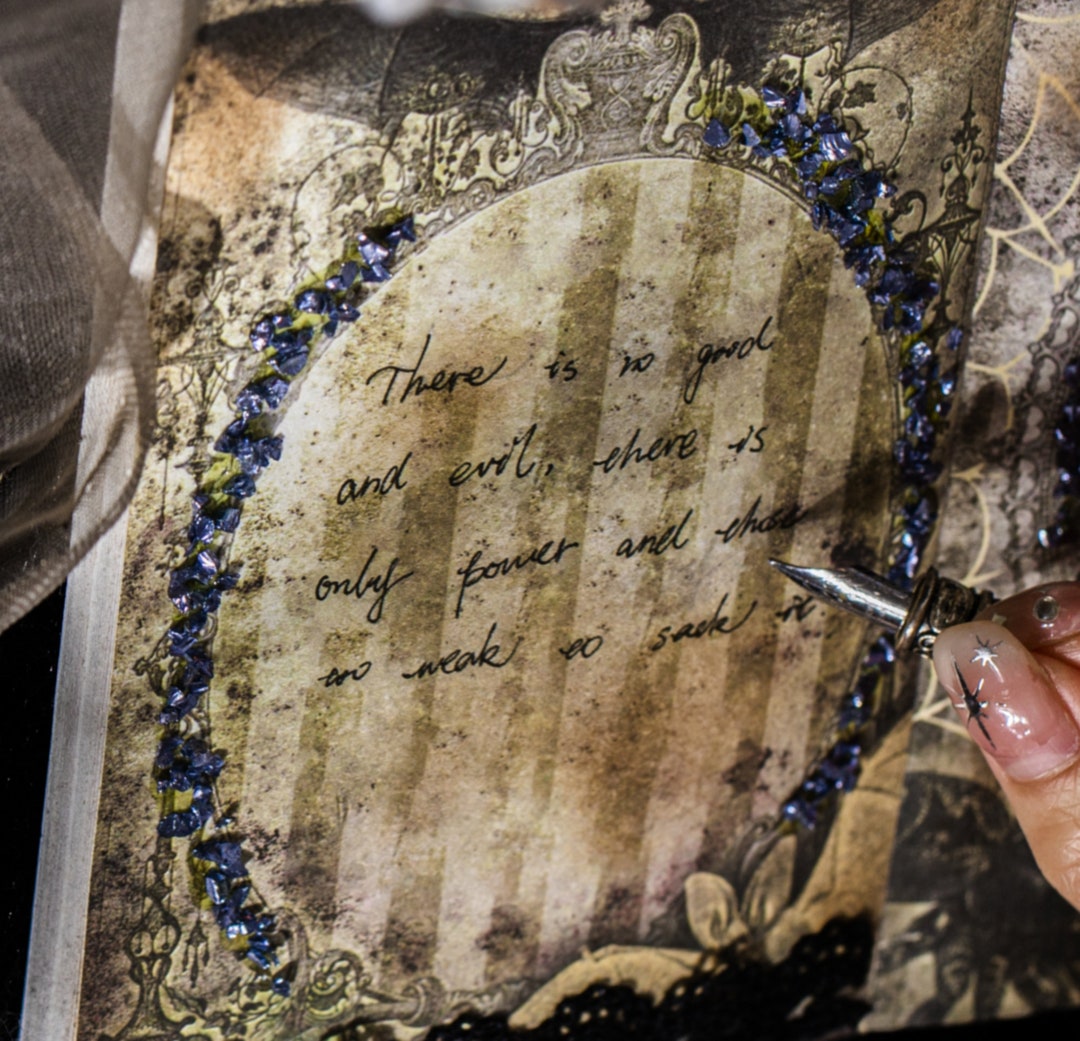 There is no good
and evil, there is
only power and those
too weak to sack it.